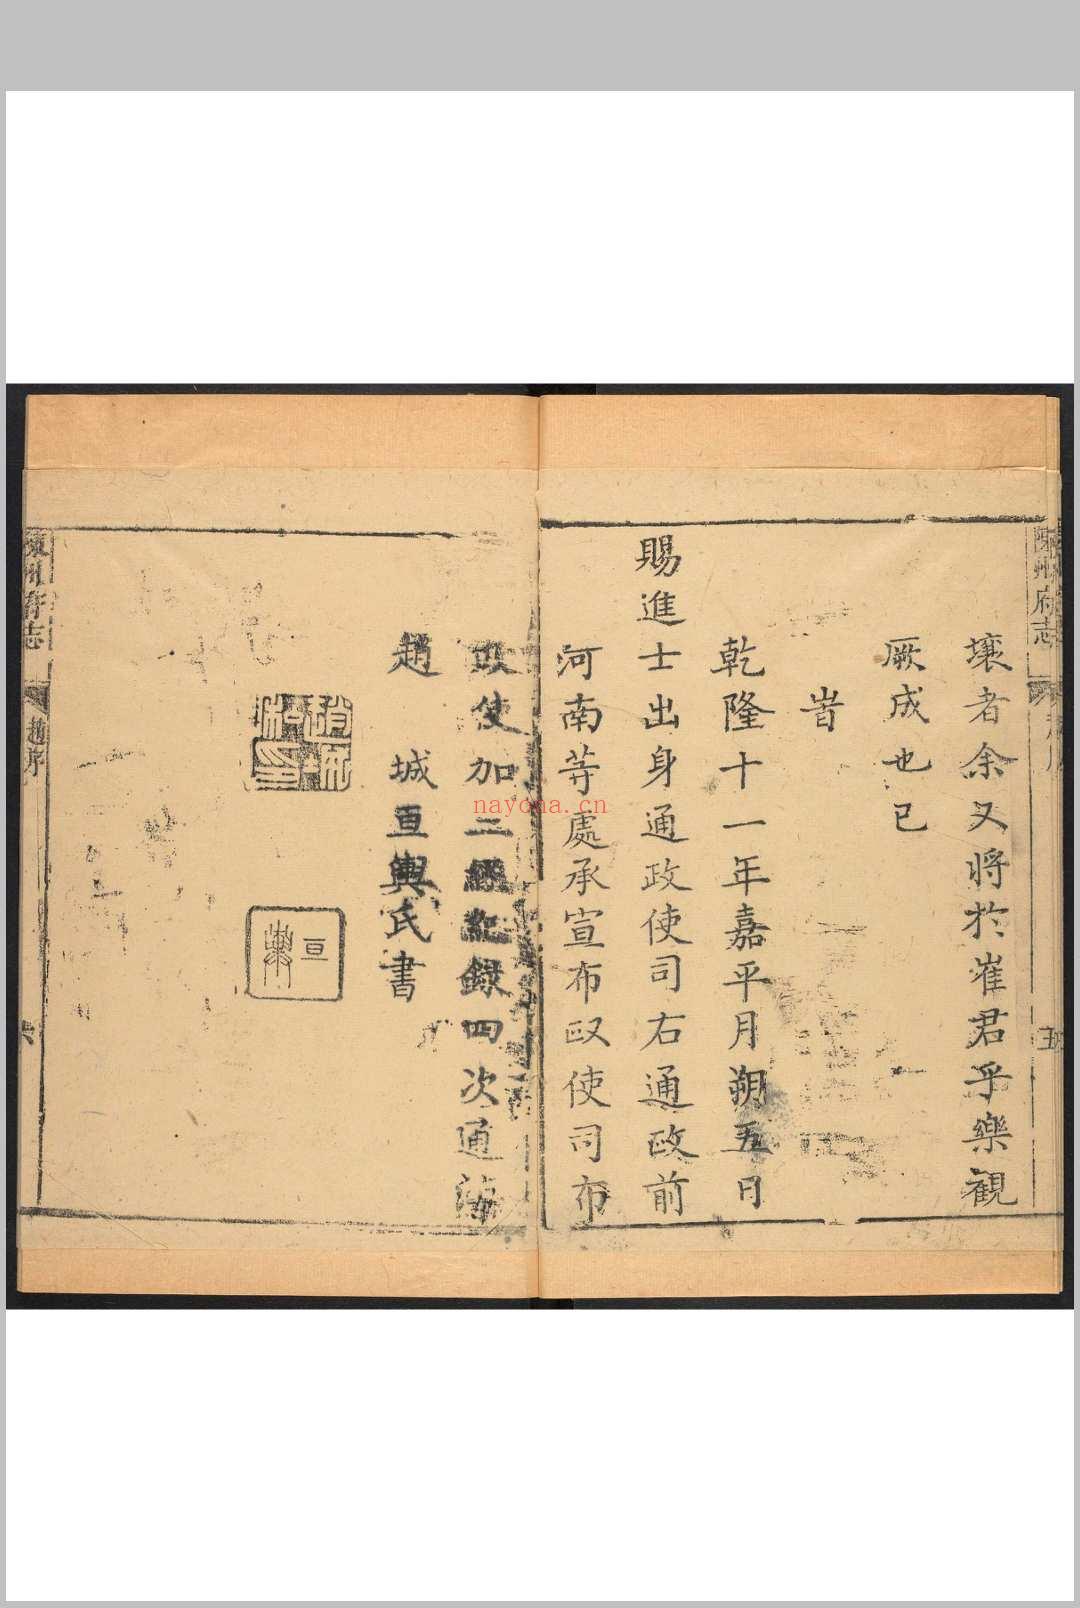 陳州府志
五
壤者余又將於崔君乎樂觀
厥成也已
旹
乾隆十一年嘉平月朔五日
賜進士出身通政使司右通政前
河南等處承宣布政使司布
政使加二級紀錄四次通
趙 城亘輿氏書
亘輿
陳州府志
趙序
六
nayona.cn